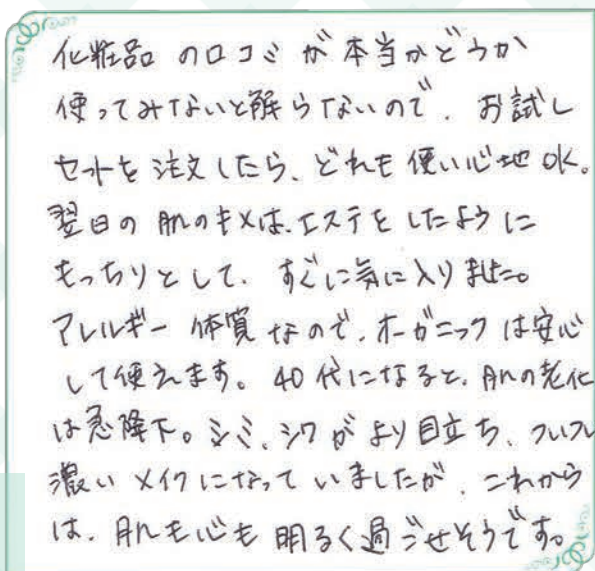 化粧品の口コミが本当かどうか
使ってみないと解らないので、お試し
セットを注文したら、どれも使い心地OK。
翌日の肌のキメは、エステをしたように
もっちりとして、すぐに気に入りました。
アレルギー体質なので、オーガニックは安心
して使えます。40代になると、肌の老化
は急降下。シミ、シワがより目立ち、ついつい
濃いメイクになっていましたが、これから
は、肌も心も明るく過ごせそうです。